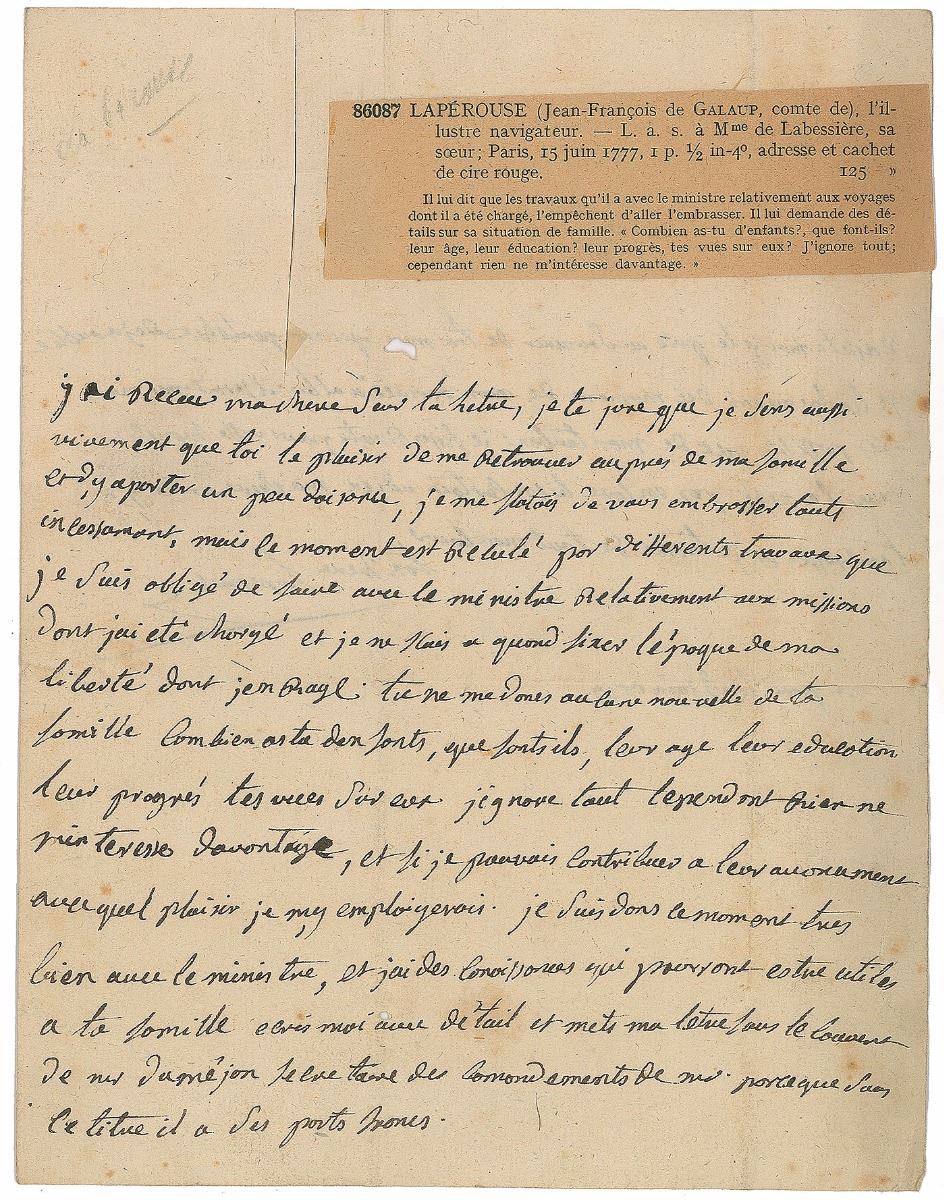 86087 LAPÉROUSE (Jean-François de GALAUP, comte de), l'il-
lustre navigateur. — L. a. s. à Mme de Labessière, sa
sœur; Paris, 15 juin 1777, 1 p. ½ in-4°, adresse et cachet
de cire rouge. 125 »
Il lui dit que les travaux qu'il a avec le ministre relativement aux voyages
dont il a été chargé, l'empêchent d'aller l'embrasser. Il lui demande des dé-
tails sur sa situation de famille. « Combien as-tu d'enfants?, que font-ils?
leur âge, leur éducation? leur progrès, tes vues sur eux? J'ignore tout;
cependant rien ne m'intéresse davantage. »
j'ai Receu ma chere Sœur ta letre, je te jure que je sens aussi
vivement que toi le plaisir de me Retrouver auprés de ma famille
et d'y aporter un peu daisance, je me flatois de vous embrasser touts
incessament, mais ce moment est Reculé par differents travaux que
je suis obligé de faire avec le ministre Relativement aux missions
dont jai eté chargé et je ne sais a quand fixer l'époque de ma
liberté dont jenrage. tu ne me dones aucune nouvelle de ta
famille Combien as tu denfants, que fonts ils, leur age leur education
leur progrés tes vues sur eux j'ignore tout cependant Rien ne
minteresse davantage, et si je pouvais Contribuer a leur avancement
avec quel plaisir je m'y emploigerois. je suis dans ce moment tres
bien avec le ministre, et jai des Conoissances qui pourront estre utiles
a ta famille ecris moi avec détail et mets ma letre sous le Couvert
de mr dumejon secretaire des Comandements de mr. parceque sous
ce titre il a ses ports francs.